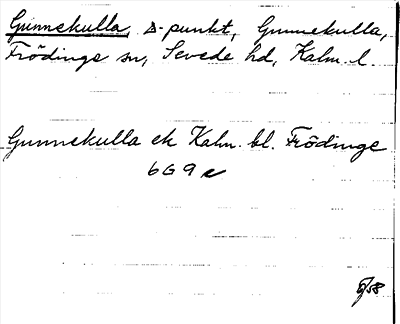 Gunnekulla, Δ-punkt, Gunnekulla,
Frödinge sn, Sevede hd, Kalm. l.
Gunnekulla ek Kalm. bl. Frödinge
6G9e